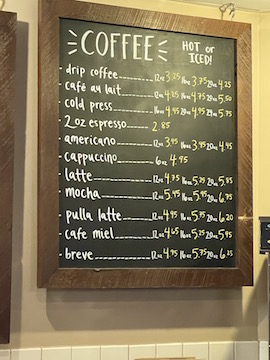 COFFEE
HOT or ICED!
- drip coffee 12oz 3.25 16oz 3.75 20oz 4.25
- café au lait 12oz 4.25 16oz 4.75 20oz 5.50
- cold press 16oz 4.95 20oz 5.75
- 2oz espresso 2.85
- americano 12oz 3.95 16oz 20oz 4.95
- cappuccino 6oz 4.95
- latte 12oz 4.75 16oz 5.25 20oz 5.85
- mocha 12oz 5.45 16oz 5.95 20oz
- pulla latte 12oz 4.95 16oz 5.75 20oz 6.20
- cafe miel 12oz 4.65 16oz 20oz 5.95
- breve 12oz 4.95 16oz 5.75 20oz 6.35